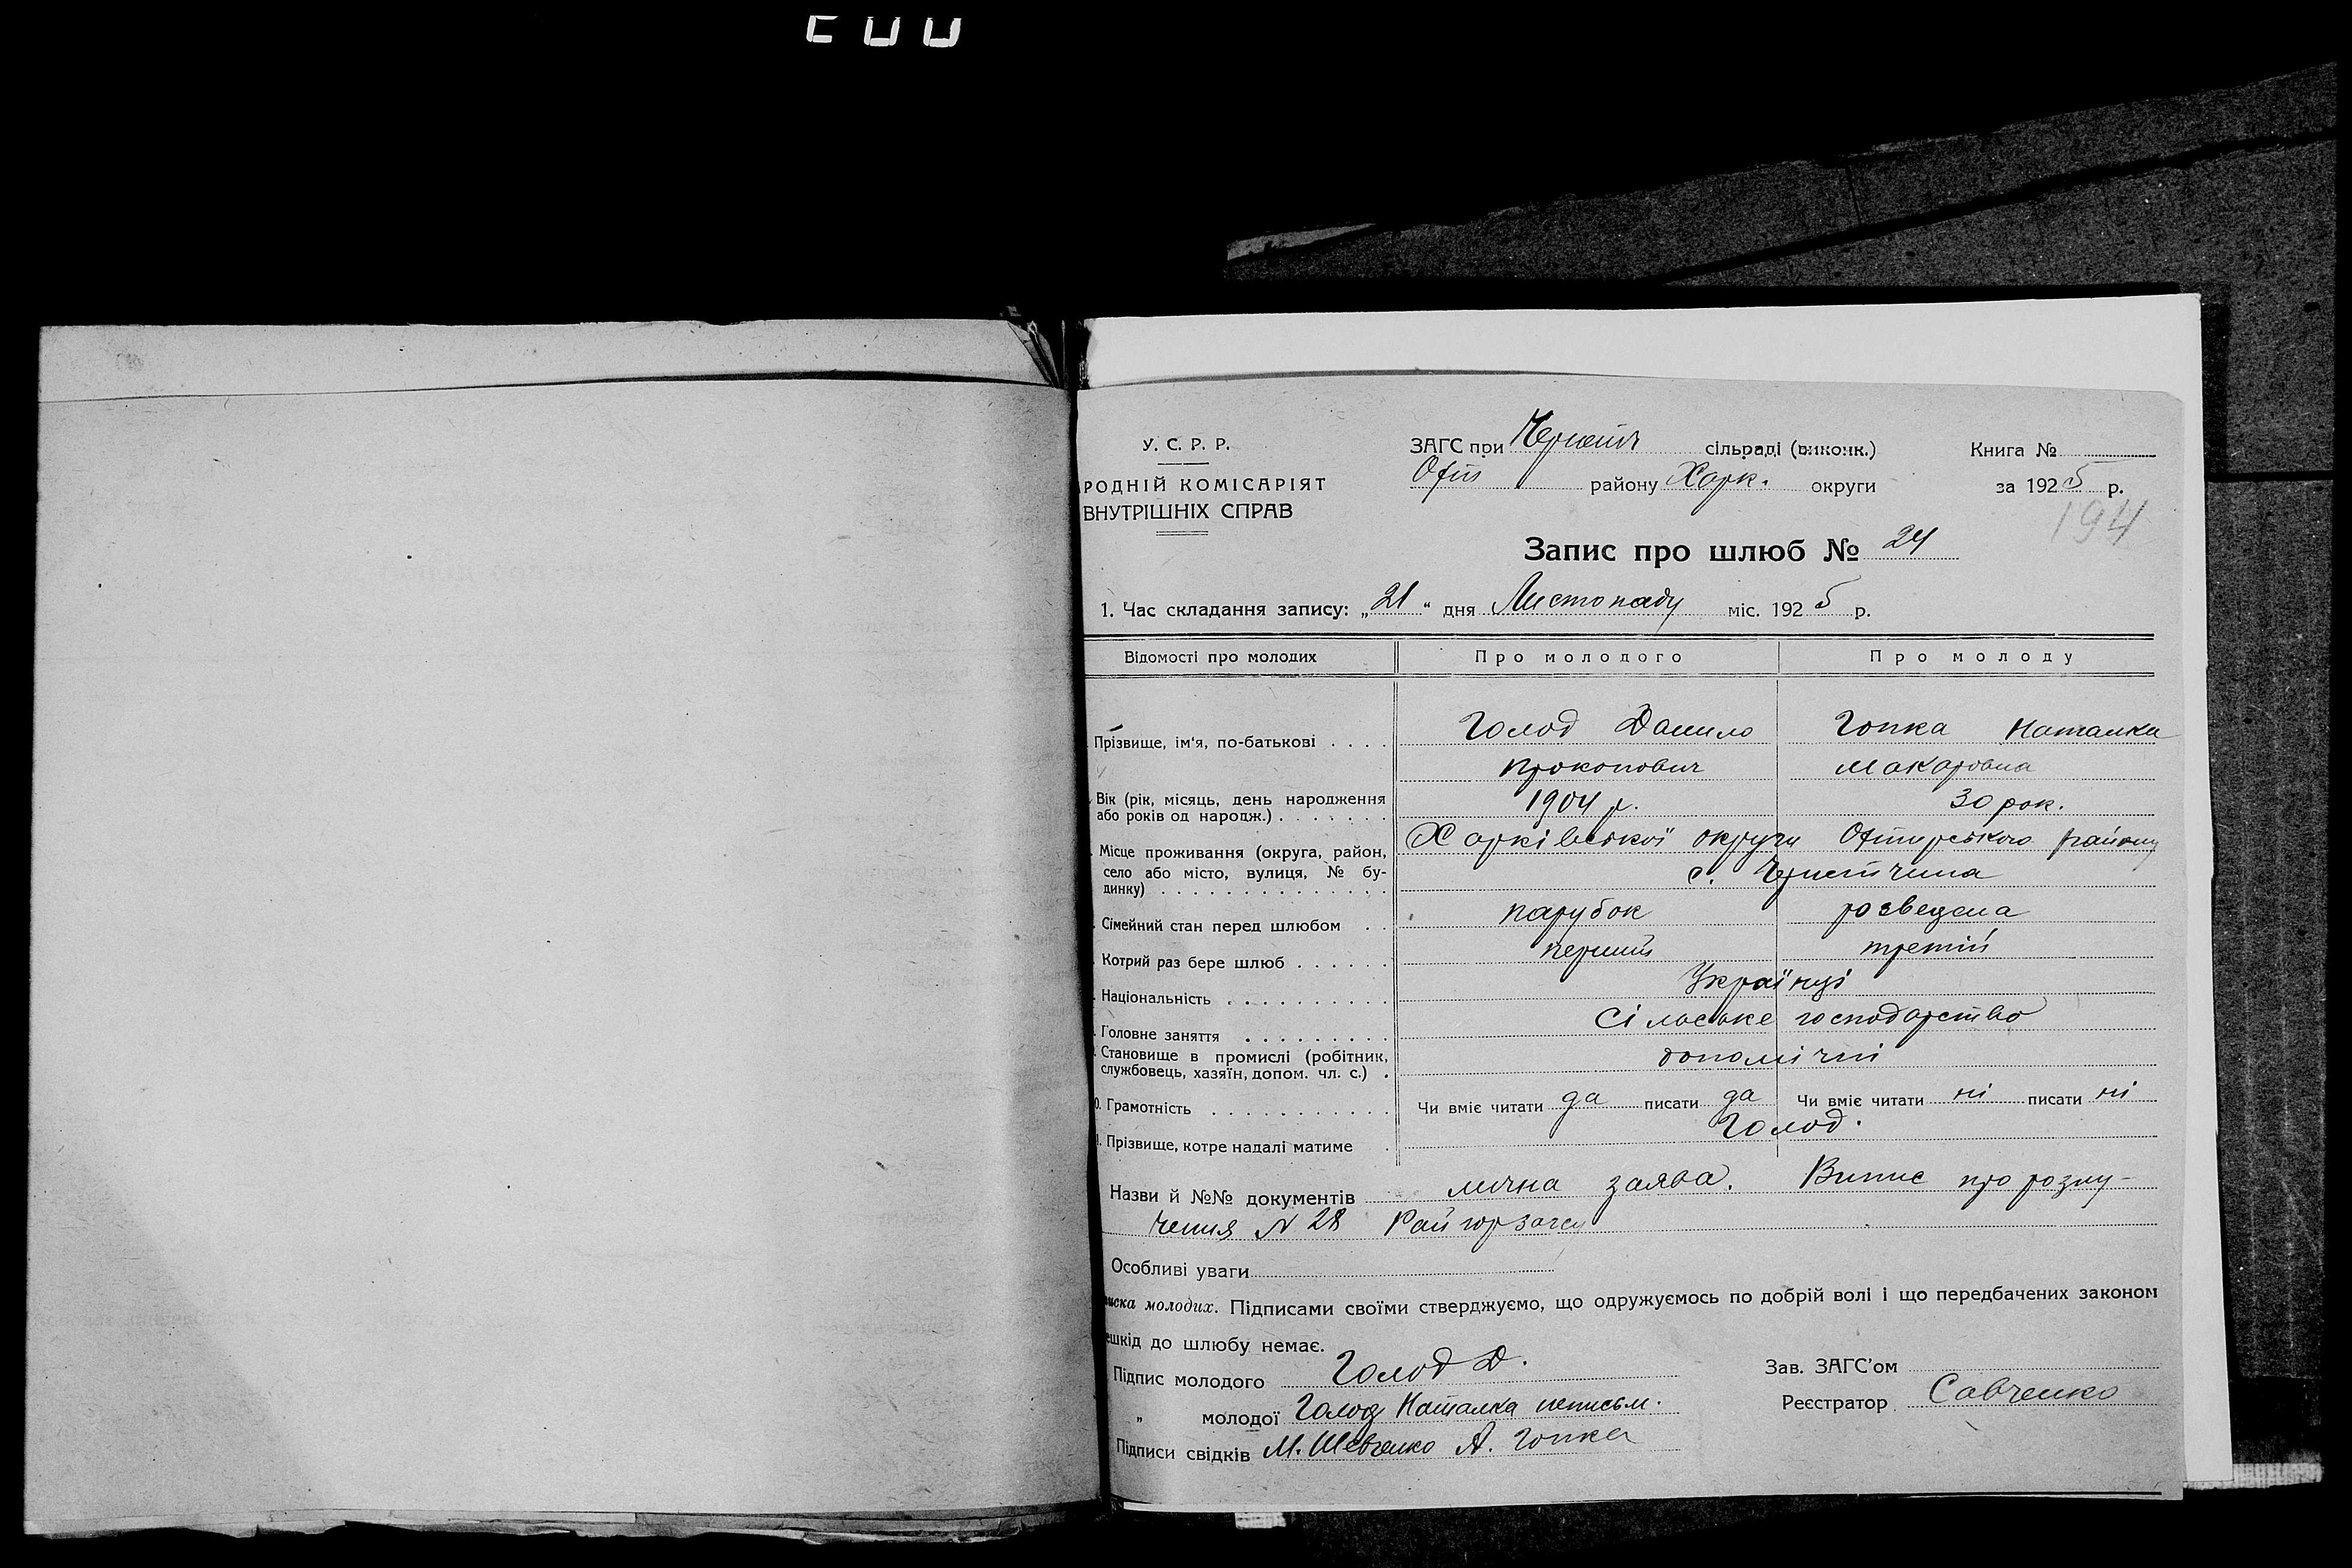 У. С. Р. Р.
РОДНІЙ КОМІСАРІЯТ
ВНУТРІШНІХ СПРАВ
ЗАГС при сільраді (виконк.) Книга №
району Харк. округи за 1925 р.
194
Запис про шлюб № 24
1. Час складання запису: „21“ дня Листопаду міс. 1925 р.
Відомості про молодих Про молодого Про молоду
Прізвище, ім'я, по-батькові . . . . Голод Данило Гопка Наталка
Прокопович Макаровна
Вік (рік, місяць, день народження
або років од народж.) . . . . . . . 1904 р. 30 рок.
Місце проживання (округа, район, Харківської округи Охтирського району
село або місто, вулиця, № бу-
динку) . . . . . . . . . . . . . . с.
Сімейний стан перед шлюбом . . парубок розведена
Котрий раз бере шлюб . . . . . . перший третій
Національність . . . . . . . . . . Українці
Головне заняття . . . . . . . . . Сільське господарство
Становище в промислі (робітник,
службовець, хазяїн, допом. чл. с.) . допомічні
0. Грамотність . . . . . . . . . . . Чи вміє читати да писати да Чи вміє читати ні писати ні
1. Прізвище, котре надалі матиме . Голод.
Назви й №№ документів лична заява. Випис про розлу-
чення N 28 Райгорзагсу
Особливі уваги
иска молодих. Підписами своїми стверджуємо, що одружуємось по добрій волі і що передбачених законом
ешкід до шлюбу немає.
Підпис молодого Голод Д. Зав. ЗАГС'ом
„ молодої Голод Наталка неписьм. Реєстратор Савченко
Підписи свідків М. Шевченко А. Гопка